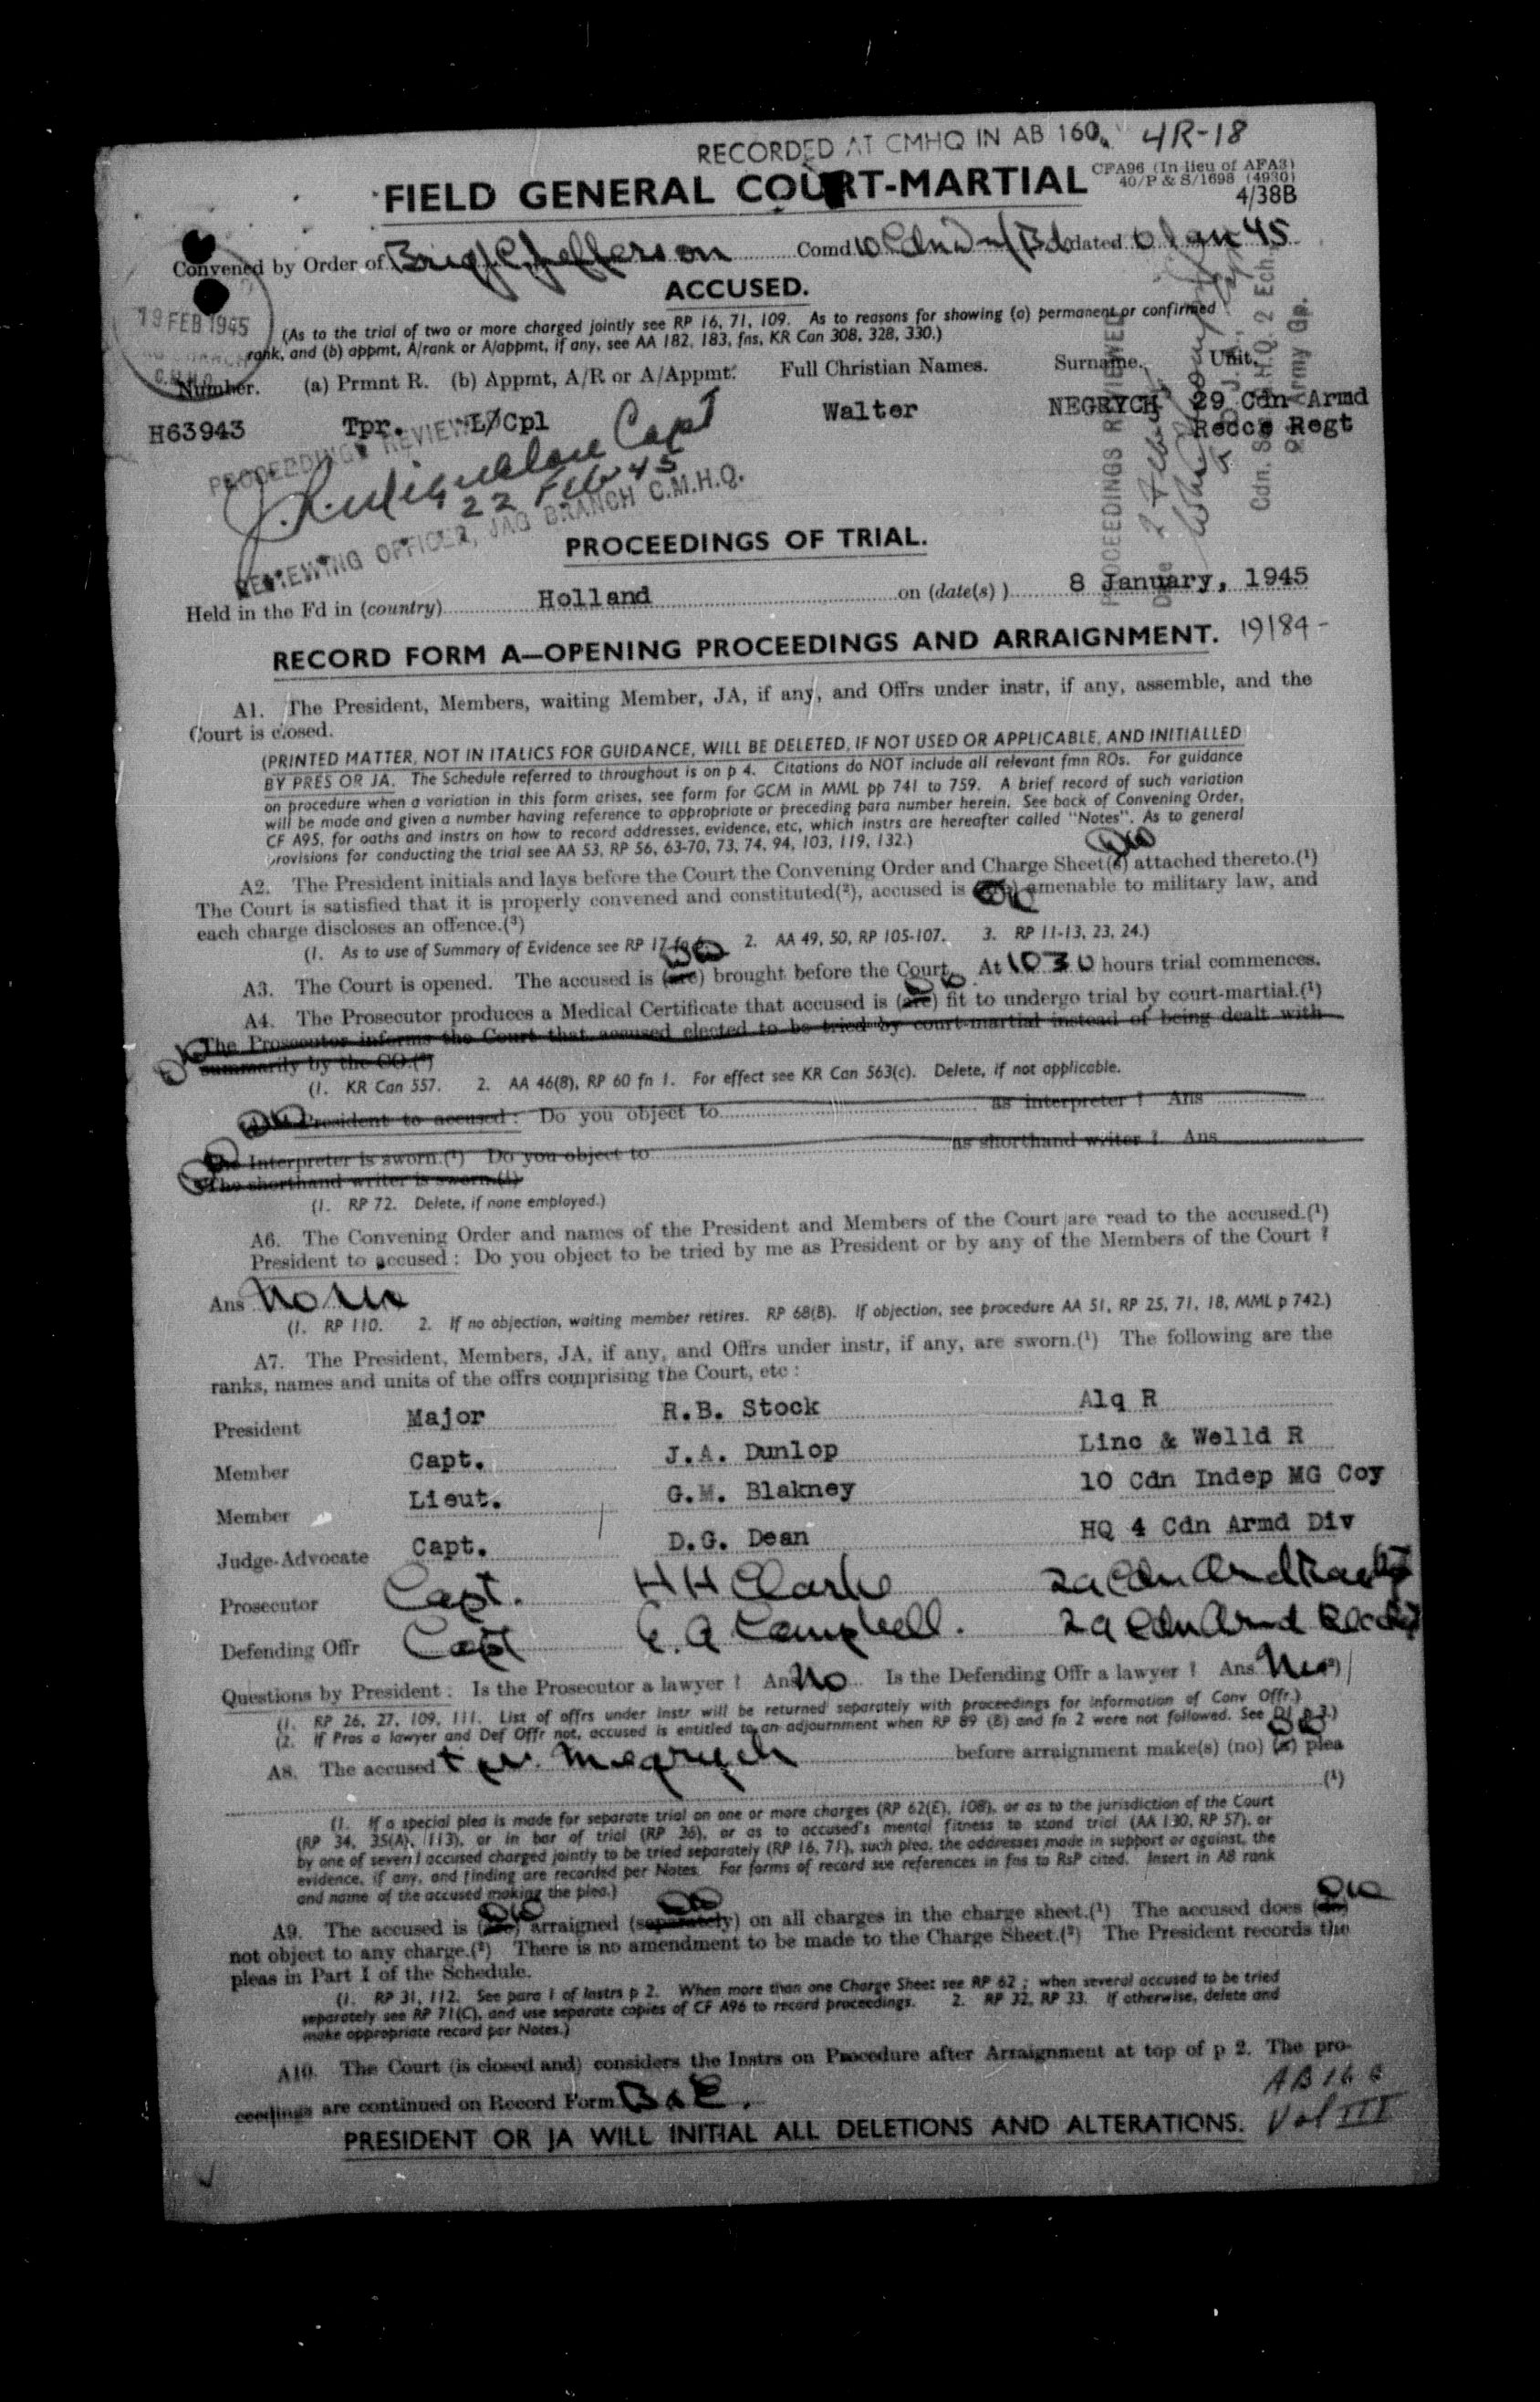 RECORDED AT CMHQ IN AB 160. 4R-18
FIELD GENERAL COURT-MARTIAL
CFA96 (In lieu of AFA3)
40/P & S/1698 (4930)
4/38B
Convened by Order of Brig Jefferson Comd 10 Cdn Inf Bde dated 6 Jan 45
ACCUSED.
19 FEB 1945
C.M.H.Q.
(As to the trial of two or more charged jointly see RP 16, 71, 109. As to reasons for showing (a) permanent or confirmed
rank, and (b) appmt, A/rank or A/appmt, if any, see AA 182, 183, fns, KR Can 308, 328, 330.)
Number. (a) Prmnt R. (b) Appmt, A/R or A/Appmt. Full Christian Names. Surname. Unit.
H63943 Tpr. L/Cpl Walter NEGRYCH 29 Cdn Armd
Recce Regt
PROCEEDINGS REVIEWED
Capt
22 Feb 45
REVIEWING OFFICER, JAG BRANCH C.M.H.Q.
PROCEEDINGS REVIEWED
Cdn. Sec. G.H.Q. 2 Ech.
Army Gp.
PROCEEDINGS OF TRIAL.
Held in the Fd in (country) Holland on (date(s)) 8 January, 1945
RECORD FORM A—OPENING PROCEEDINGS AND ARRAIGNMENT. 19184-
A1. The President, Members, waiting Member, JA, if any, and Offrs under instr, if any, assemble, and the
Court is closed.
(PRINTED MATTER, NOT IN ITALICS FOR GUIDANCE, WILL BE DELETED, IF NOT USED OR APPLICABLE, AND INITIALLED
BY PRES OR JA. The Schedule referred to throughout is on p 4. Citations do NOT include all relevant fmn ROs. For guidance
on procedure when a variation in this form arises, see form for GCM in MML pp 741 to 759. A brief record of such variation
will be made and given a number having reference to appropriate or preceding para number herein. See back of Convening Order,
CF A95, for oaths and instrs on how to record addresses, evidence, etc, which instrs are hereafter called "Notes". As to general
provisions for conducting the trial see AA 53, RP 56, 63-70, 73, 74, 94, 103, 119, 132.)
A2. The President initials and lays before the Court the Convening Order and Charge Sheet(s) attached thereto.(¹)
The Court is satisfied that it is properly convened and constituted(²), accused is amenable to military law, and
each charge discloses an offence.(³)
(1. As to use of Summary of Evidence see RP 17 2. AA 49, 50, RP 105-107. 3. RP 11-13, 23, 24.)
A3. The Court is opened. The accused is (are) brought before the Court. At 1030 hours trial commences.
A4. The Prosecutor produces a Medical Certificate that accused is (are) fit to undergo trial by court-martial.(¹)
The Prosecutor informs the Court that accused elected to be tried by court-martial instead of being dealt with
summarily by the CO.(²)
(1. KR Can 557. 2. AA 46(8), RP 60 fn 1. For effect see KR Can 563(c). Delete, if not applicable.
President to accused: Do you object to as interpreter ? Ans
The Interpreter is sworn.(¹) Do you object to as shorthand writer ? Ans
The shorthand writer is sworn.(¹)
(1. RP 72. Delete, if none employed.)
A6. The Convening Order and names of the President and Members of the Court are read to the accused.(¹)
President to accused: Do you object to be tried by me as President or by any of the Members of the Court ?
Ans No
(1. RP 110. 2. If no objection, waiting member retires. RP 68(B). If objection, see procedure AA 51, RP 25, 71, 18, MML p 742.)
A7. The President, Members, JA, if any, and Offrs under instr, if any, are sworn.(¹) The following are the
ranks, names and units of the offrs comprising the Court, etc :
President Major R.B. Stock Alq R
Member Capt. J.A. Dunlop Linc & Welld R
Member Lieut. G.M. Blakney 10 Cdn Indep MG Coy
Judge-Advocate Capt. D.G. Dean HQ 4 Cdn Armd Div
Prosecutor Capt. H H Clarke 29 Cdn Armd
Defending Offr Capt A Campbell. 29 Cdn Armd
Questions by President : Is the Prosecutor a lawyer ? Ans No Is the Defending Offr a lawyer ? Ans No (²)
(1. RP 26, 27, 109, 111. List of offrs under instr will be returned separately with proceedings for information of Conv Offr.)
(2. If Pros a lawyer and Def Offr not, accused is entitled to an adjournment when RP 89 (B) and fn 2 were not followed. See
A8. The accused Negrych before arraignment make(s) (no) (a) plea
(¹)
(1. If a special plea is made for separate trial on one or more charges (RP 62(E), 108), or as to the jurisdiction of the Court
(RP 34, 35(A), 113), or in bar of trial (RP 36), or as to accused's mental fitness to stand trial (AA 130, RP 57), or
by one of several accused charged jointly to be tried separately (RP 16, 71), such plea, the addresses made in support or against, the
evidence, if any, and finding are recorded per Notes. For forms of record see references in fns to RsP cited. Insert in A8 rank
and name of the accused making the plea.)
A9. The accused is (are) arraigned (separately) on all charges in the charge sheet.(¹) The accused does (do)
not object to any charge.(²) There is no amendment to be made to the Charge Sheet.(²) The President records the
pleas in Part I of the Schedule.
(1. RP 31, 112. See para 1 of Instrs p 2. When more than one Charge Sheet see RP 62 ; when several accused to be tried
separately see RP 71(C), and use separate copies of CF A96 to record proceedings. 2. RP 32, RP 33. If otherwise, delete and
make appropriate record per Notes.)
A10. The Court (is closed and) considers the Instrs on Procedure after Arraignment at top of p 2. The pro-
ceedings are continued on Record Form B & E.
AB 16
Vol III
PRESIDENT OR JA WILL INITIAL ALL DELETIONS AND ALTERATIONS.